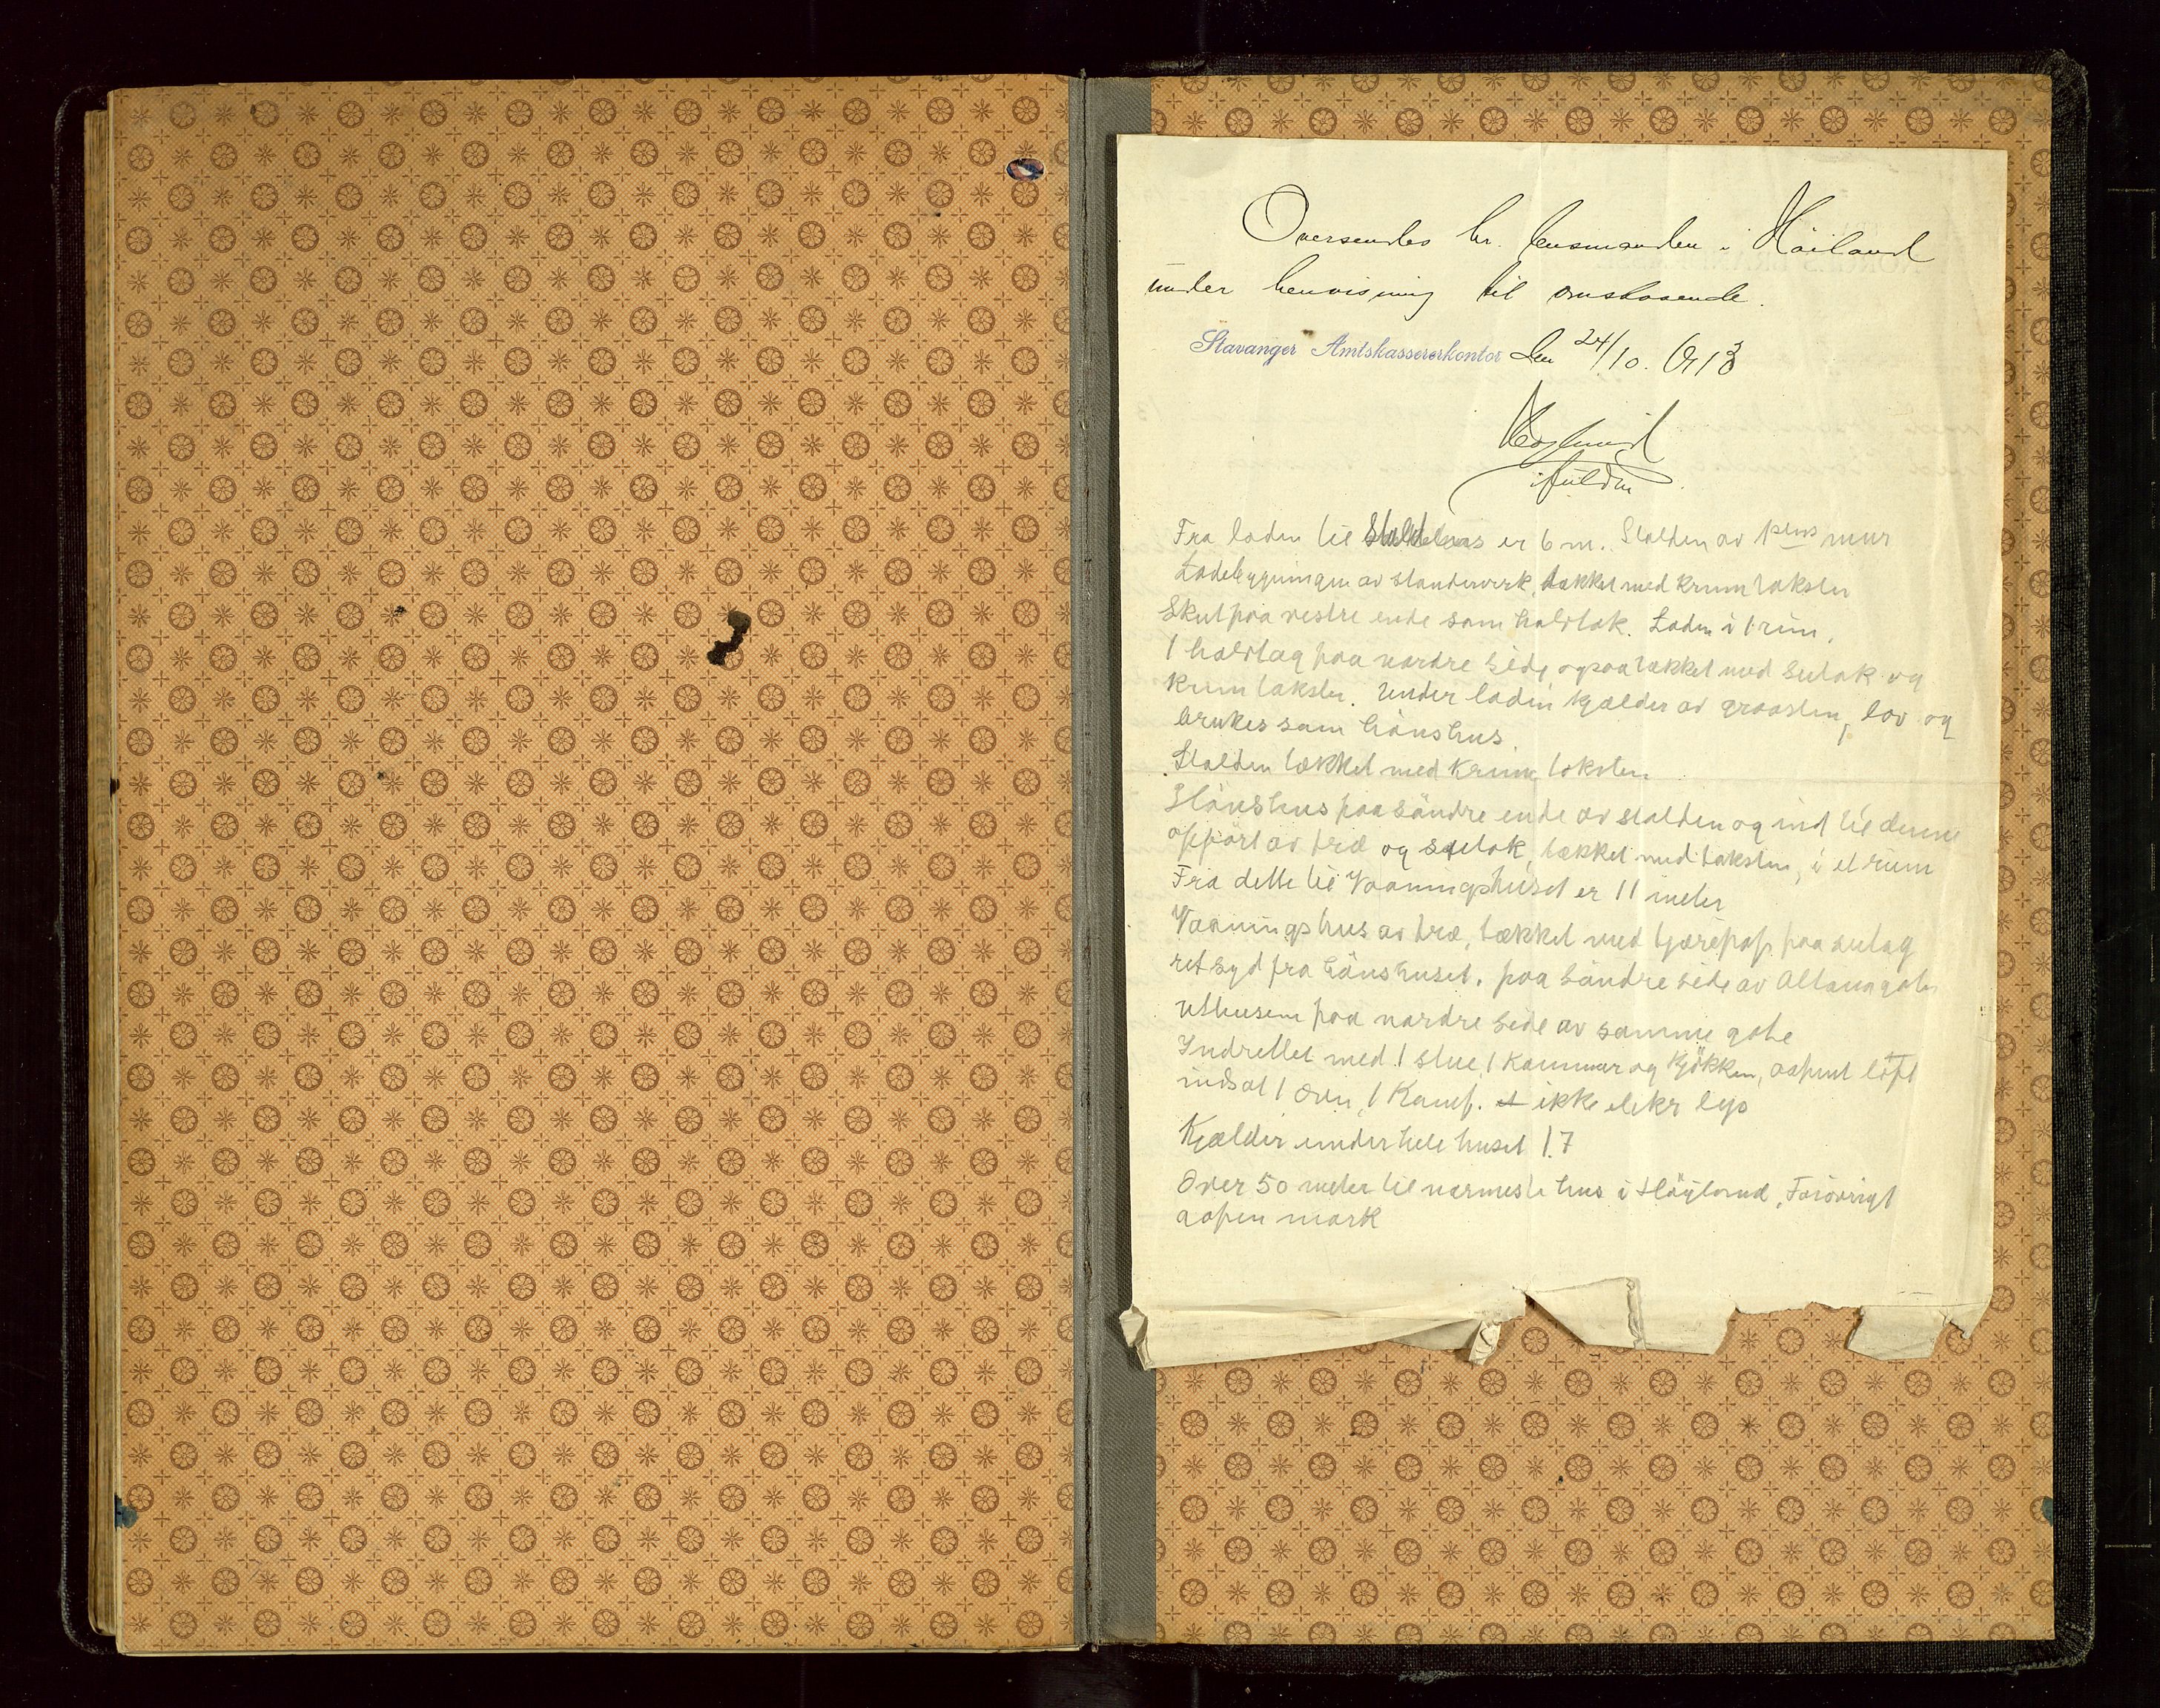 Oversendes hr. lensmanden i Höiland
under henvisning til omstaaende.
Stavanger Amtskassererkontor den 24/10. 1913
i fuldm
Fra laden til er 6 m. Stalden av mur
Ladebygningen av standerverk, tækket med krum taksten
Skut paa vestre ende som halvtak. Laden i 1 rum,
1 halvtag paa nordre side ogsaa tækket med sutak og
krum taksten. Under laden kjælder av graasten, lav og
brukes som hönshus.
Stalden tækket med krum taksten
Hönshus paa söndre ende av stalden og ind til denne
oppört av træ og sutak, tækket med taksten, i et rum
Fra dette til Vaaningshuset er 11 meter
Vaaningshus av træ, tækket med tjærepap paa sutag
ret syd fra hönshuset. paa söndre side av Altanagaten
uthusene paa nordre side av samme gate
Indrettet med 1 stue, 1 kammer og kjökken, aapent loft
indsat 1 ovn, 1 Komf. ikke elekr lys
Kjælder under hele huset 1.7
Over 50 meter til nærmeste hus i Höyland, Forövrigt
aapen mark